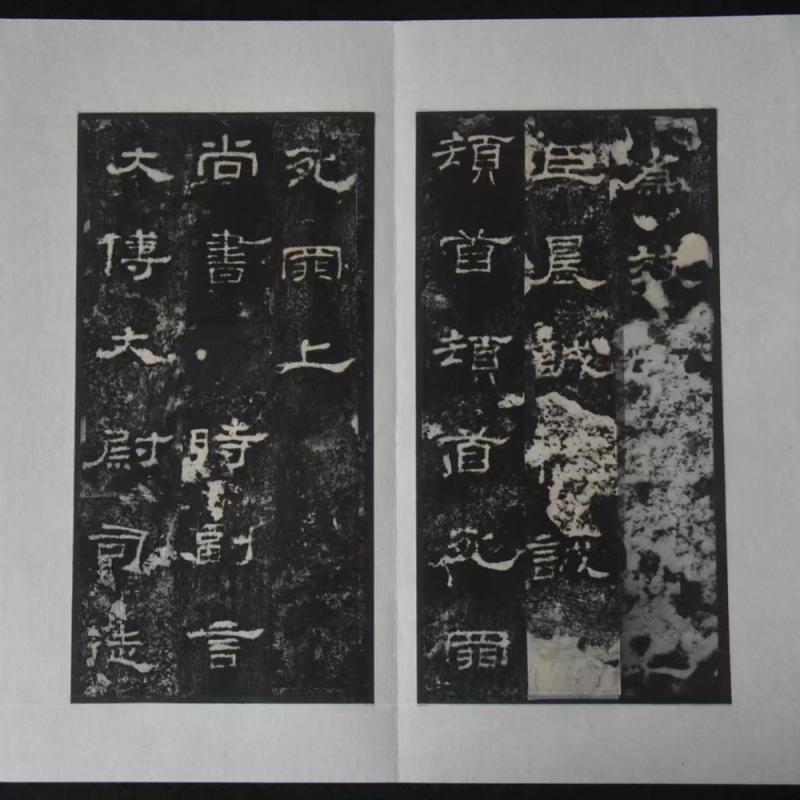 為效
臣晨誠誠
頓首頓首死罪
死罪上
尚書時副言
大傅大尉司徒